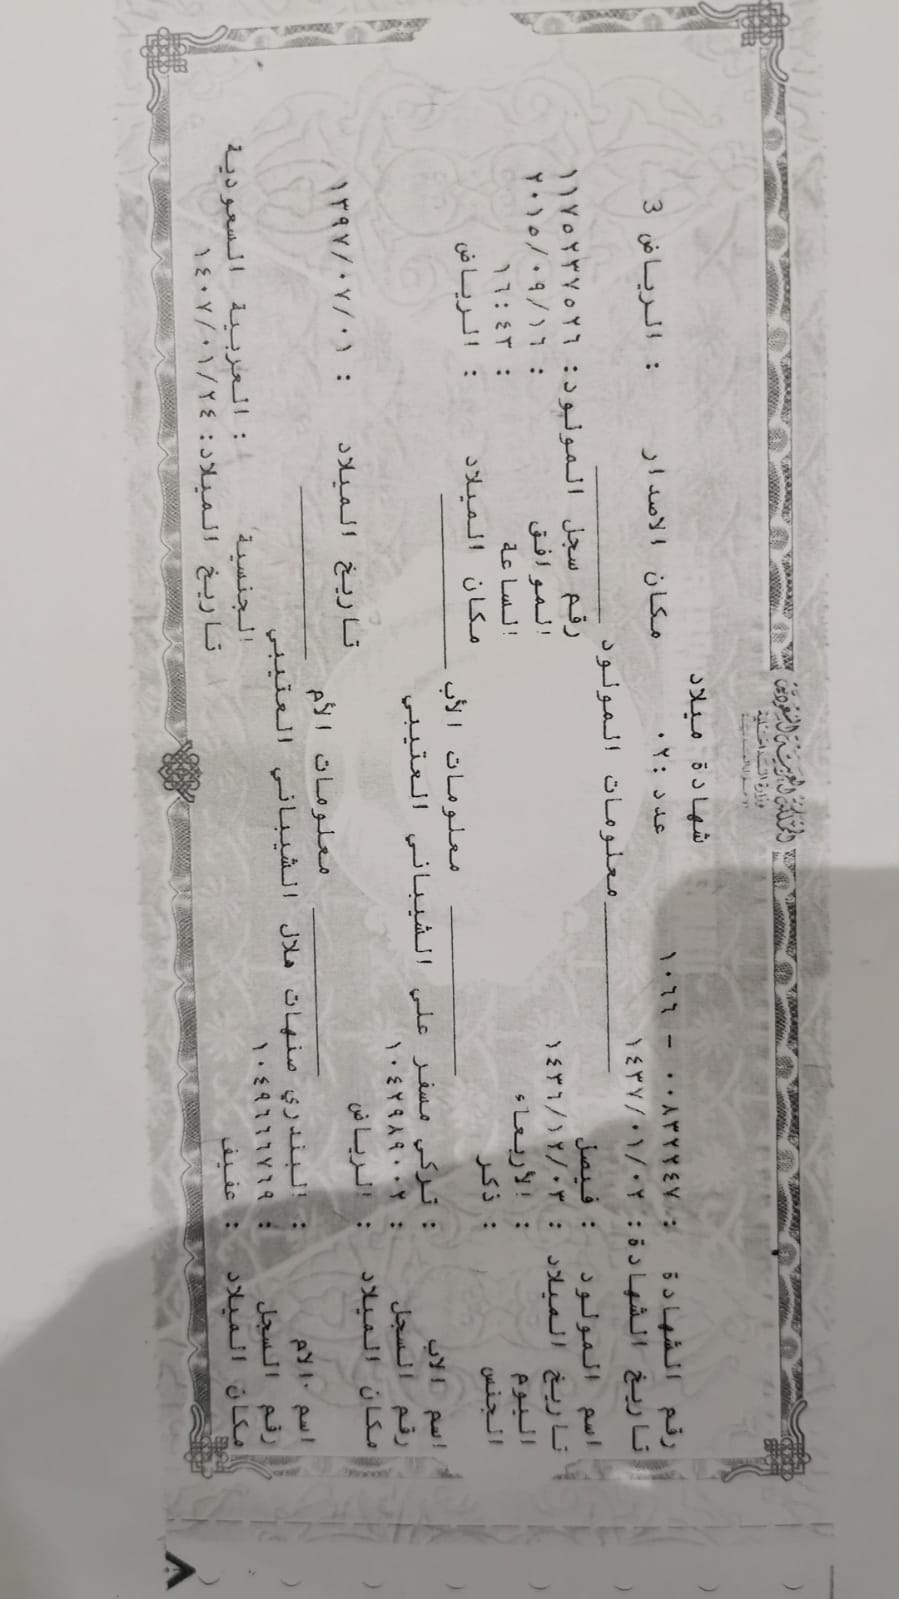 المملكة العربية السعودية
وزارة الداخلية
شهادة ميلاد
رقم الشهادة : ٠٠٨٣٢٢٤٧ - ١٠٦٦ عدد :٠٢ مكان الاصدار : الرياض 3
تاريخ الشهادة: ١٤٣٧/٠١/٠٢
معلومات المولود
اسم المولود : فيصل رقم سجل المولود: ١١٧٥٢٣٧٥٢٦
تاريخ الميلاد : ١٤٣٦/١٢/٠٣ الموافق : ٢٠١٥/٠٩/١٦
اليوم : الأربعاء الساعة : ١٦:٤٣
الجنس : ذكر مكان الميلاد : الرياض
معلومات الأب
اسم الاب : تركي مسفر علي الشيباني العتيبي
رقم السجل : ١٠٤٢٩٨٩٠٠٢
مكان الميلاد : الرياض تاريخ الميلاد : ١٣٩٧/٠٧/٠١
معلومات الأم
اسم الام : البندري سنهات هلال الشيباني العتيبي
رقم السجل : ١٠٤٩٦٦٦٧٦٩ الجنسية : العربية السعودية
مكان الميلاد : عفيف تاريخ الميلاد: ١٤٠٧/٠١/٢٤